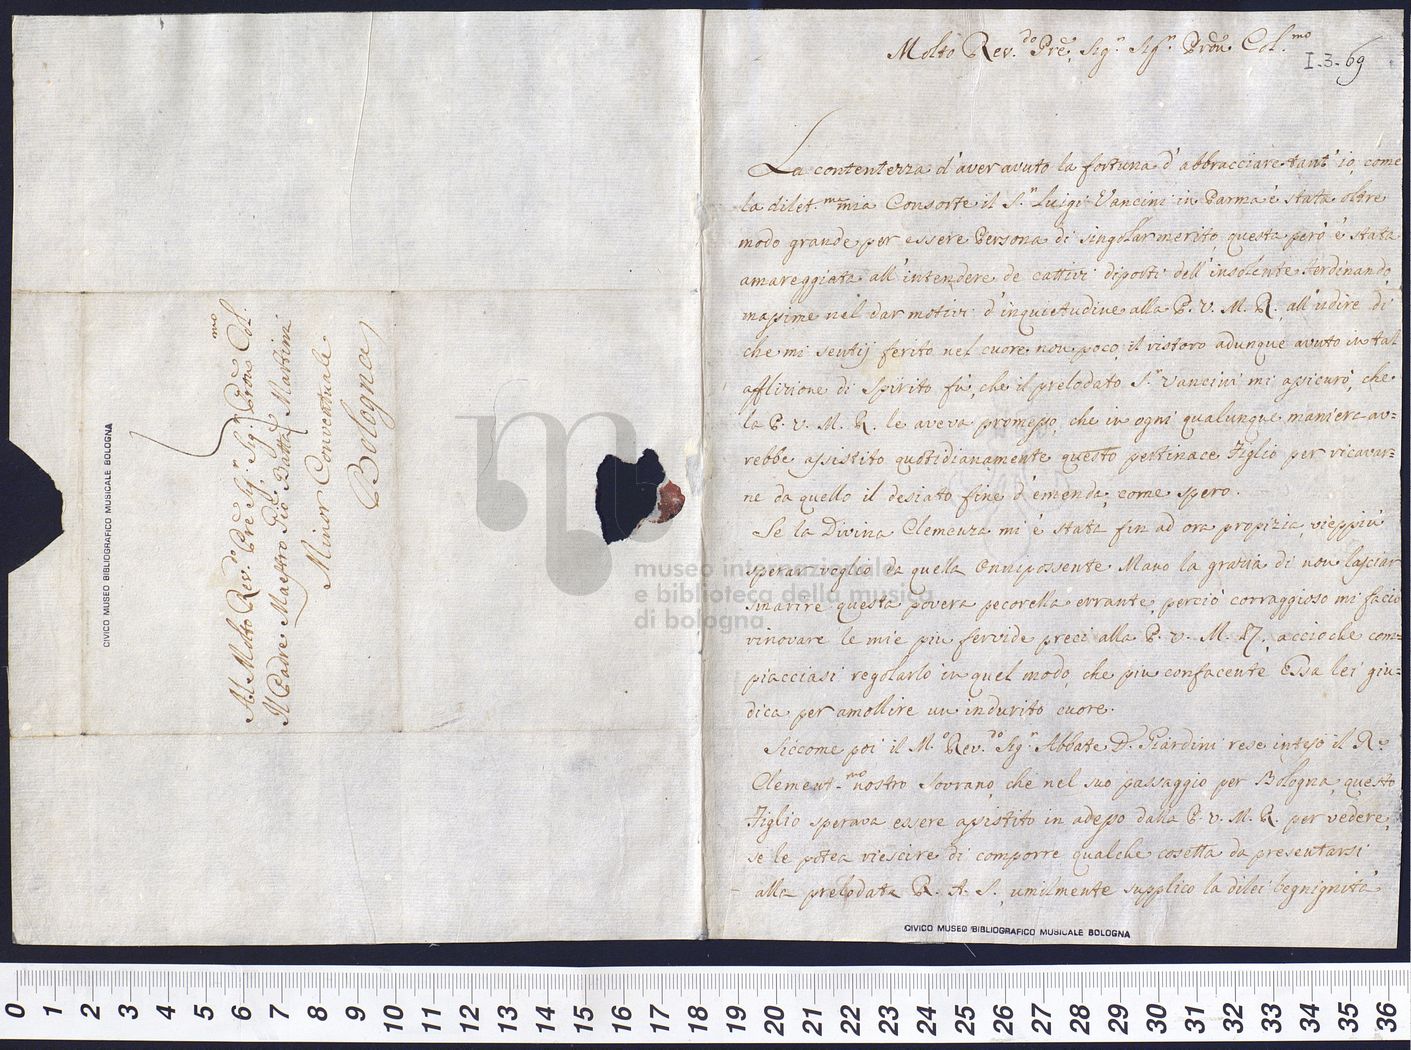 Molto Rev.do Pre, Sig.r Sig.r Prõn Col.mo
I.3.69
La contentezza d'aver avuto la fortuna d'abbracciare tant'io, come
la dilet.ma mia Consorte il S.r Luigi Vancini in Parma è stata oltre
modo grande per essere Persona di singolar merito, questa però è stata
amareggiata all'intendere de cattivi diporti dell'insolente Ferdinando,
massime nel dar motivi d'inquietudine alla P. V. M. R., all'udire di
che mi sentij ferito nel cuore non poco, il ristoro adunque avuto in tal
afflizione di spirito fù, che il prelodato S.r Vancini mi assicurò, che
la P. V. M. R. le aveva promesso, che in ogni qualunque maniera av=
rebbe assistito quotidianamente questo pertinace Figlio per ricavar=
ne da quello il desiato fine d'emenda, come spero.
Se la Divina Clemenza mi è stata fin ad ora propizia, vieppiù
sperar voglio da quella Onnipossente Mano la grazia di non lasciar
smarire questa povera pecorella errante, perciò corraggioso mi facio
rinovare le mie più fervide preci alla P. V. M. R., acciochè com=
piacciasi regolarlo in quel modo, che più confacente Essa lei giu=
dica per amollire un indurito cuore.
Siccome poi il M.o Rev.do Sig.r Abbate D. Giardini rese inteso il R.
Clement.mo nostro Sovrano, che nel suo passaggio per Bologna, questo
Figlio sperava essere assistito in adesso dalla P. V. M. R. per vedere,
se le potea riescire di comporre qualche cosetta da presentarsi
alla prelodata R. A. S., umilmente supplico la di lei begnignità
CIVICO MUSEO BIBLIOGRAFICO MUSICALE BOLOGNA
Al Molto Rev.do Pre Sig.r Sig.r Prõn Col.mo
Il Padre Maestro Gio Batta Martini
Minor Conventuale
Bologna
CIVICO MUSEO BIBLIOGRAFICO MUSICALE BOLOGNA
museo internazionale
e biblioteca della musica
di bologna
0 1 2 3 4 5 6 7 8 9 10 11 12 13 14 15 16 17 18 19 20 21 22 23 24 25 26 27 28 29 30 31 32 33 34 35 36